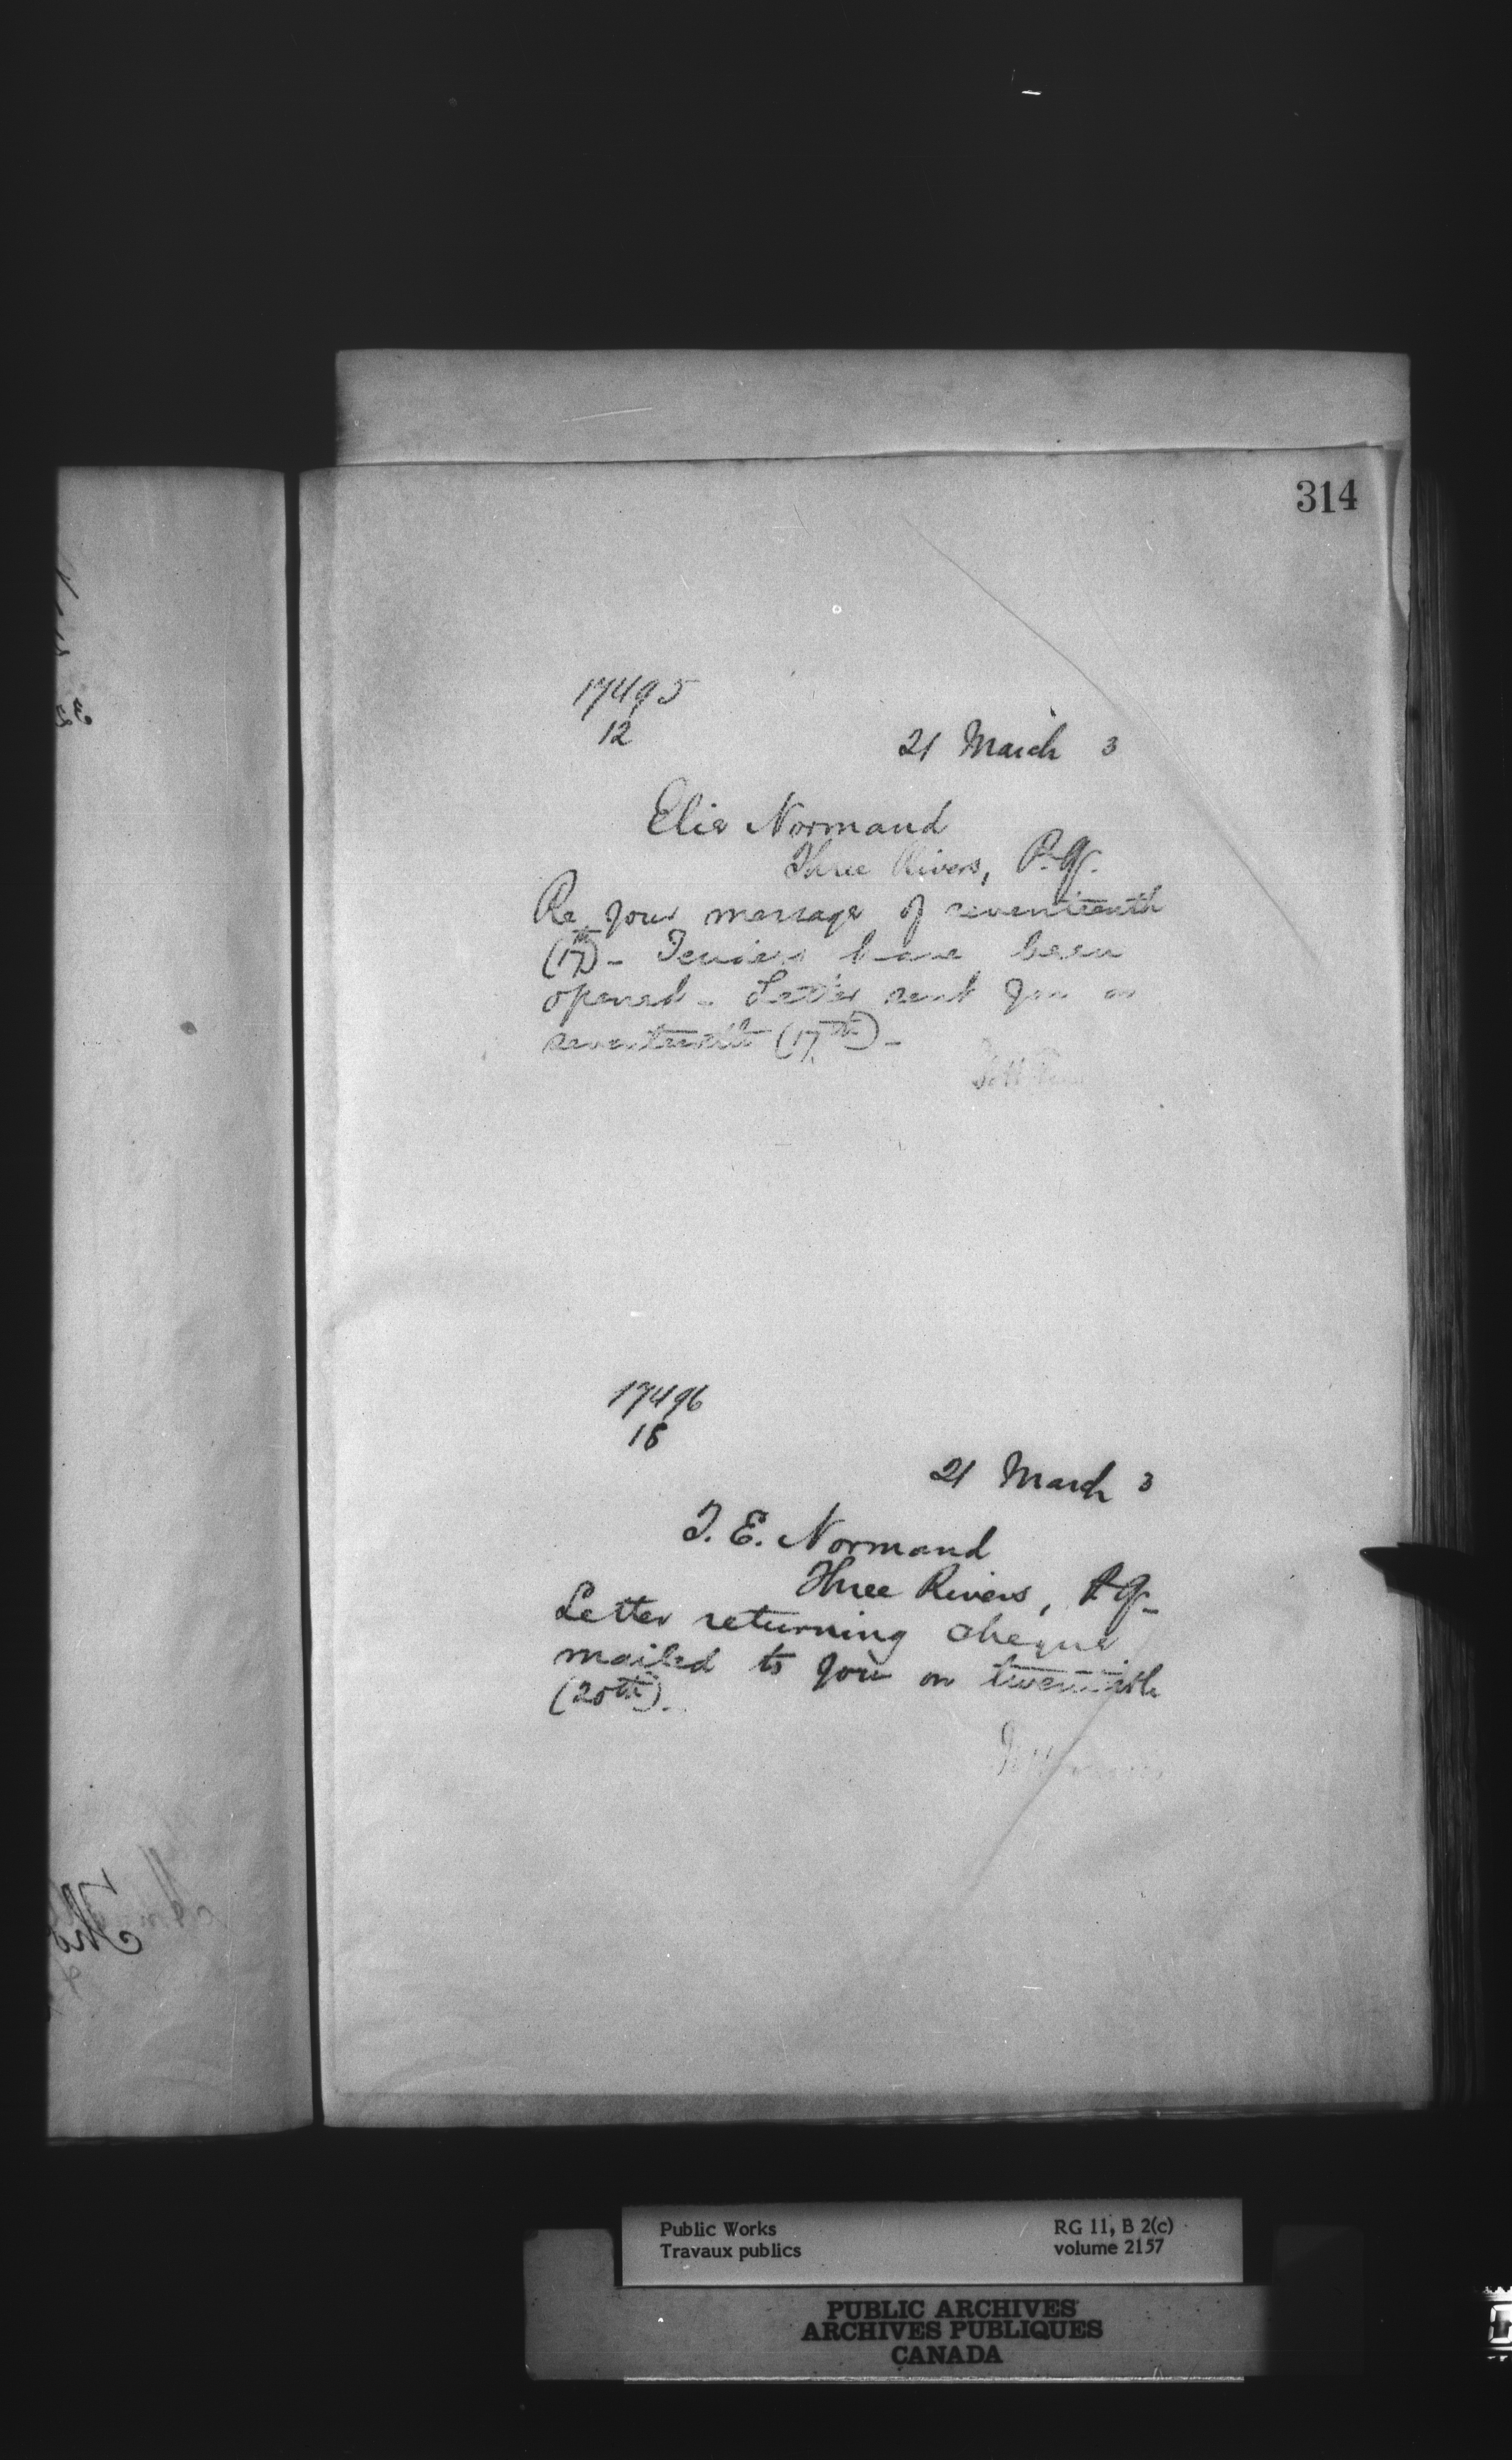 314
17495
12
21 March 3
Elie Normand
Three Rivers, P.Q.
Re your message of seventeenth
(17th) - Tenders have been
opened - Letter sent you on
seventeenth (17th) -
17496
18
21 March 3
T. E. Normand
Three Rivers, P.Q.
Letter returning cheque
mailed to you on twentieth
(20th).
Public Works
Travaux publics
RG 11, B 2(c)
volume 2157
PUBLIC ARCHIVES
ARCHIVES PUBLIQUES
CANADA